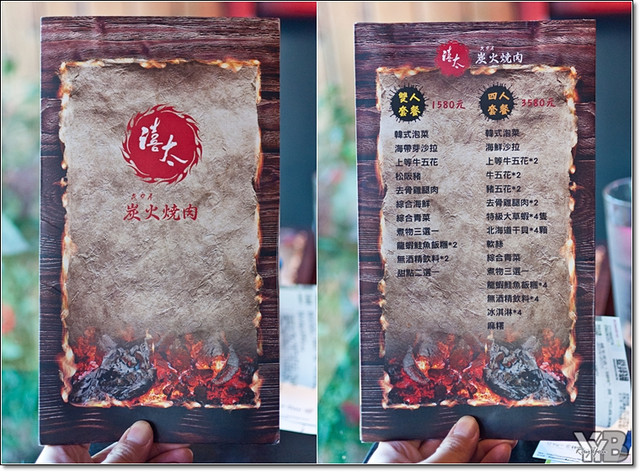 禧太
炭火燒肉
禧太
炭火燒肉
雙人
套餐
1580元
韓式泡菜
海帶芽沙拉
上等牛五花
松阪豬
去骨雞腿肉
綜合海鮮
綜合青菜
煮物三選一
龍蝦鮭魚飯糰*2
無酒精飲料*2
甜點二選一
四人
套餐
3580元
韓式泡菜
海鮮沙拉
上等牛五花*2
牛五花*2
豬五花*2
去骨雞腿肉*2
特級大草蝦*4隻
北海道干貝*4顆
軟絲
綜合青菜
煮物三選一
龍蝦鮭魚飯糰*4
無酒精飲料*4
冰淇淋*4
麻糬